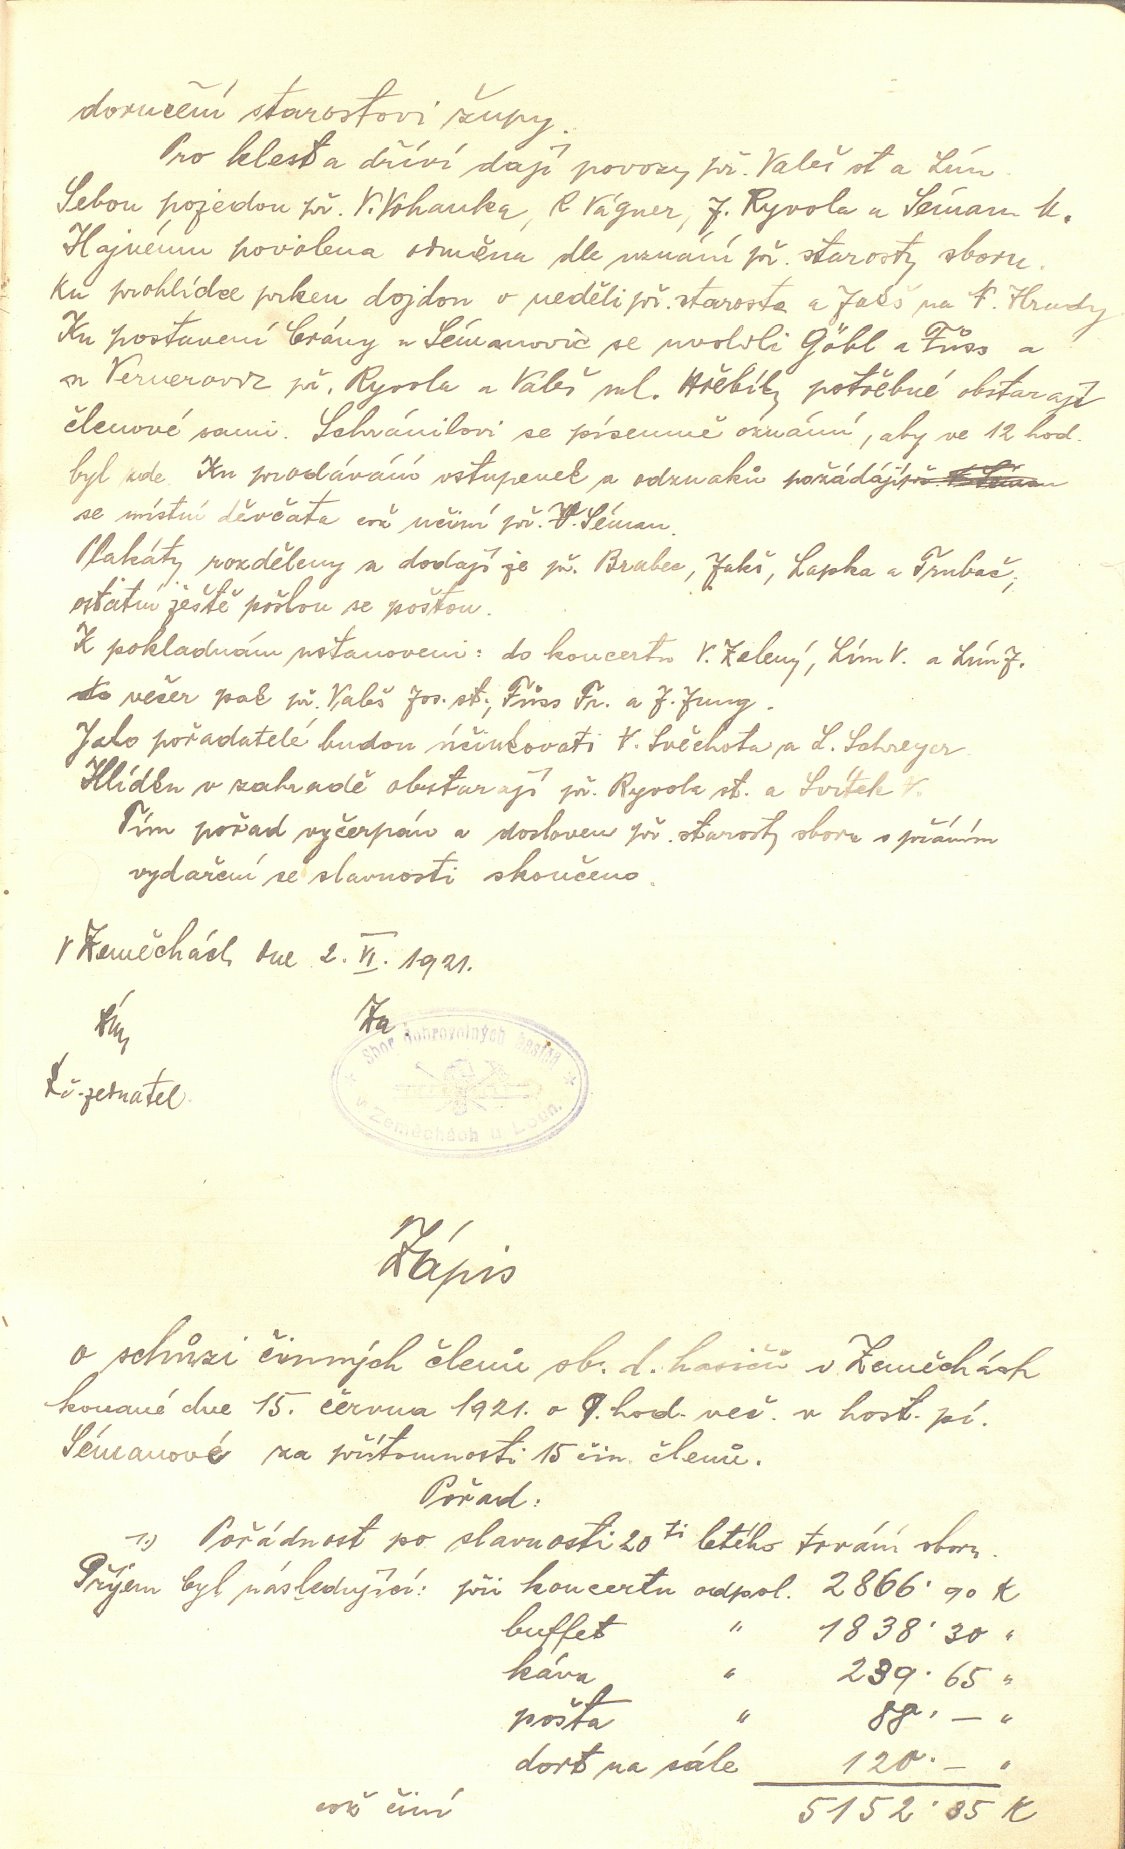 doručění starostovi župy.
Pro klest a dříví dají povozy př. Valeš st a Lím.
Sebou pojedou př. V. Vohanka, R Vágner, J. Ryvola a Séman K.
Hajnému povolena odměna dle uznání př. starosty sboru.
Ku prohlídce prken dojdou v neděli př. starosta a Jakš na V. Hrudy
Ku postavení brány u Sémanovic se uvolili Göbl a Füss a
u Vernerovic př. Ryvola a Valeš ml. Hřebíky potřebné obstarají
členové sami. Schránilovi se písemně oznámí, aby ve 12 hod.
byl zde. Ku prodávání vstupenek a odznaků požádájí př. V. Séman
se místní děvčata což učiní př. V. Séman.
Plakáty rozděleny a dodají je př. Brabec, Jakš, Lapka a Trubač,
ostatní ještě pošlou se poštou.
K pokladnám ustanoveni: do koncertu V. Zelený, Lím V. a Lím J.
večer pak př. Valeš Jos. st., Füss Fr. a J. Jung.
Jako pořadatelé budou účinkovati V. Svěchota a L. Schreyer
Hlídku v zahradě obstarají př. Ryvola st. a Svítek V.
Tím pořad vyčerpán a doslovem př. starosty sboru s přáním
vydaření se slavnosti skončeno.
V Zeměchách dne 2. VI. 1921.
Lím Za
Sbor dobrovolných hasičů
v Zeměchách u Loun.
t. č. jednatel
Zápis
o schůzi činných členů sb. d. hasičů v Zeměchách
konané dne 15. června 1921. o 9. hod. več. v host. pí.
Sémanové za přítomnosti 15 čin. členů.
Pořad:
1.) Pořádnost po slavnosti 20ti letého trvání sboru.
Příjem byl následující: při koncertu odpol. 2866·90 K
buffet " 1838·30 "
káva " 239·65 "
pošta " 88·— "
dort na sále 120·— "
což činí 5152·85 K